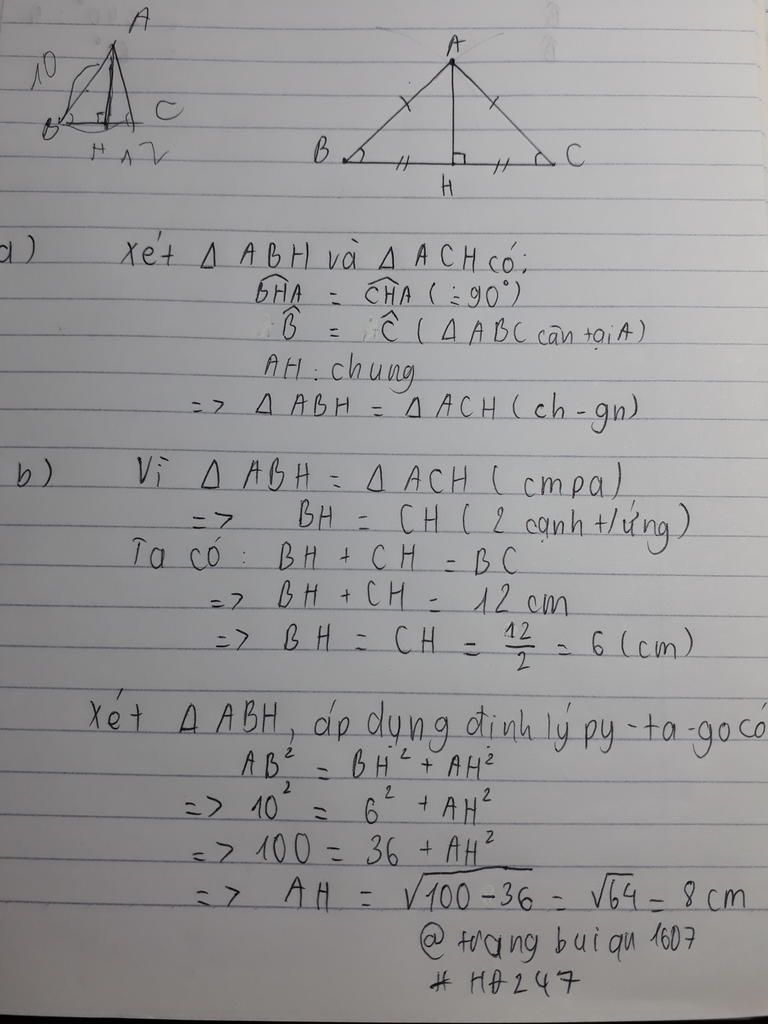 A
10
B
C
H
12
A
B
C
H
a) Xét Δ ABH và Δ ACH có:
BHA = CHA (=90°)
B̂ = Ĉ (Δ ABC cân tại A)
AH: chung
=> Δ ABH = Δ ACH (ch-gn)
b) Vì Δ ABH = Δ ACH (cmpa)
=> BH = CH (2 cạnh t/ứng)
Ta có: BH + CH = BC
=> BH + CH = 12 cm
=> BH = CH = 12/2 = 6 (cm)
Xét Δ ABH, áp dụng định lý py-ta-go có
AB² = BH² + AH²
=> 10² = 6² + AH²
=> 100 = 36 + AH²
=> AH = √100-36 = √64 = 8 cm
@ trang bui qu 1607
# HA247